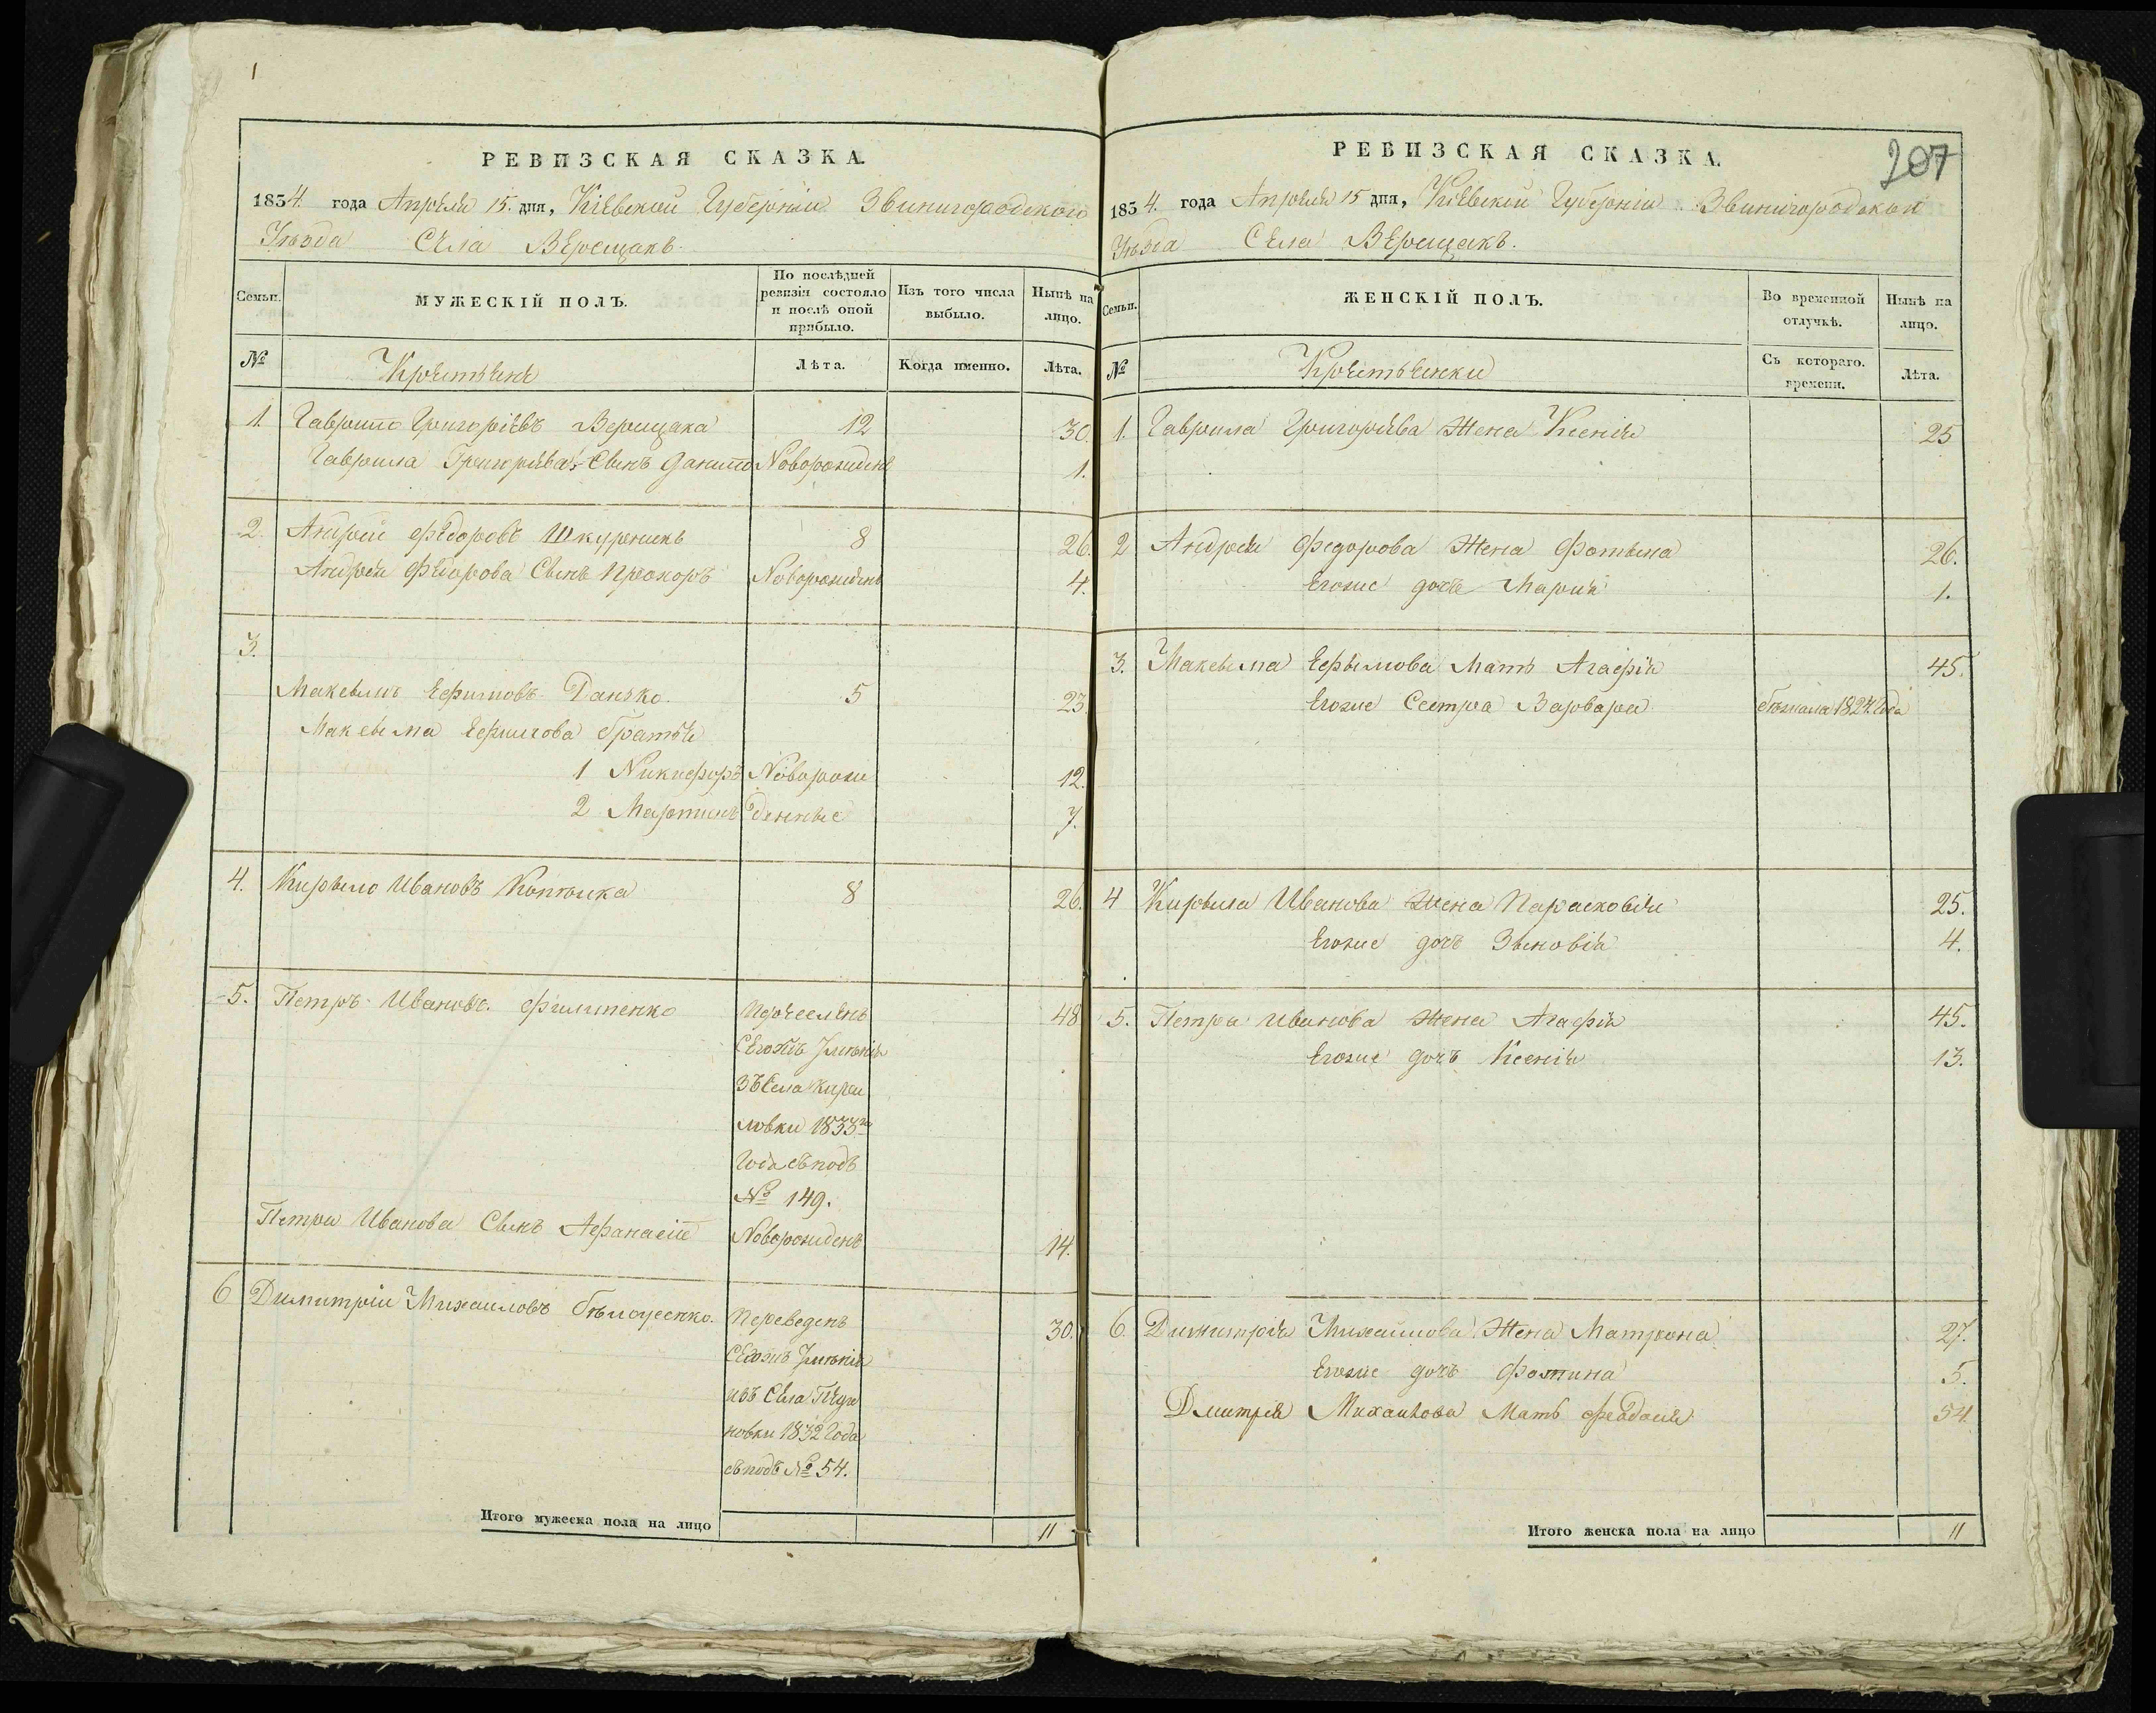 1
РЕВИЗСКАЯ СКАЗКА.
1834. года Апреля 15. дня, Кіевской Губерніи Звинигородского
Уезда Села Верещакъ.
Семьи.
МУЖЕСКІЙ ПОЛЪ.
По послѣдней ревизіи состояло и послѣ оной прибыло.
Изъ того числа выбыло.
Нынѣ на лицо.
№ Крестьяне Лѣта. Когда именно. Лѣта.
1. Гаврило Григоріевъ Верещака 12 30.
Гаврила Григоріева Сынъ Данило Новорожденъ 1.
2. Андрей Федоровъ Шкурникъ 8 26.
Андрея Федорова Сынъ Прохоръ Новорожденъ 4.
3.
Максымъ Ефимовъ Данько. 5 23.
Максыма Ефимова братья
1 Никифоръ Новорож 12.
2 Мартинъ денные 7.
4. Кирыло Ивановъ Копыка 8 26.
5. Петръ Ивановъ. Филипенко Переселенъ 48
Сегожъ Имѣнія
зъ Села Кири
ловки 1833го
Года съподъ
№ 149.
Петра Иванова Сынъ Афанасій Новорожденъ 14.
6 Димитрій Михаиловъ Переведенъ 30.
Сегожъ Имѣнія
изъ Села Педи
новки 1832 Года
съподъ № 54.
Итого мужеска пола на лицо 11
207
РЕВИЗСКАЯ СКАЗКА.
1834. года Апреля 15 дня, Кіевской Губерніи Звинигородского
Уезда Села Верещакъ.
Семьи.
ЖЕНСКІЙ ПОЛЪ.
Во временной отлучкѣ.
Нынѣ на лицо.
№ Крестьянки Съ котораго. времени. Лѣта.
1. Гаврила Григорьева Жена Ксенія 25
2 Андрея Федорова Жена Фотына 26.
Егоже дочь Марія 1.
3. Максыма Ефымова Мать Агафія 45.
Егоже Сестра Варвара бежала 1824 Года
4 Кирыла Иванова Жена Парасковія 25.
Егоже дочь Зеновія 4.
5. Петра Иванова Жена Агафія 45.
Егоже дочь Ксенія 13.
6. Димитрія Михаилова Жена Матрона 27.
Егоже дочь Фотина 5.
Дмитрія Михайлова Мать Феодосія 54.
Итого женска пола на лицо 11